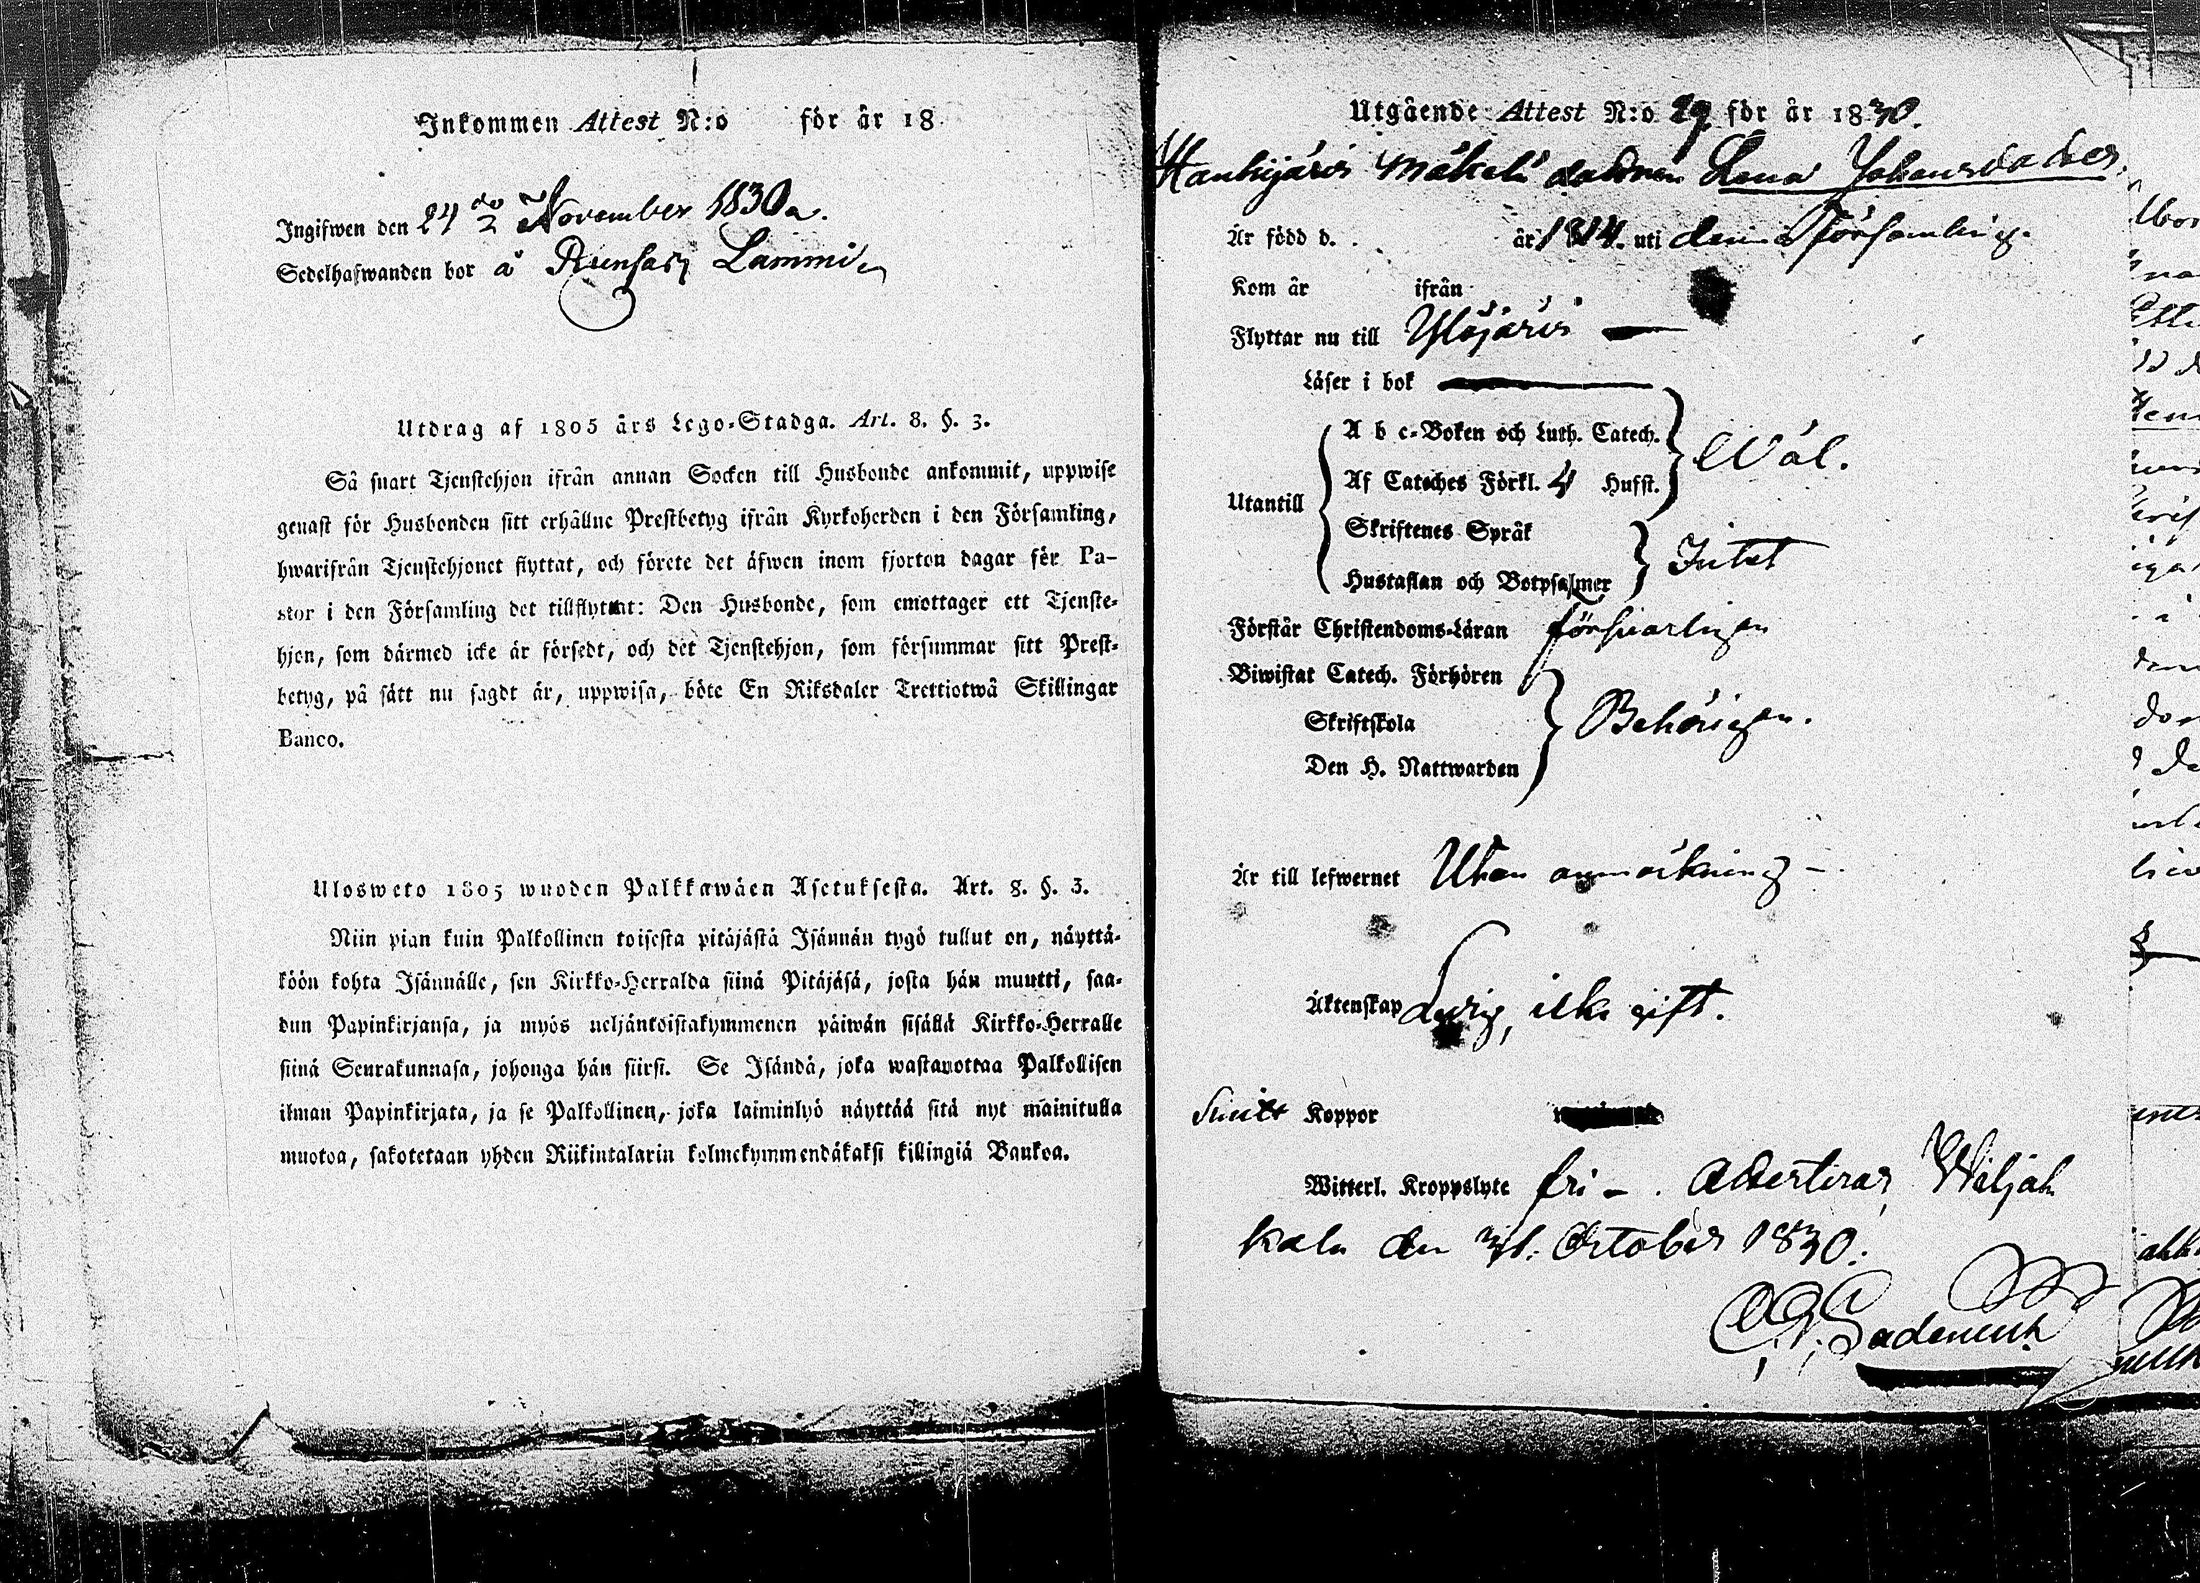 Inkommen Attest N:o för år 18
Ingifwen den 24 November 1830
Sedelhafwanden bor å Runsari Lammi
Utdrag af 1805 års Lego-Stadga. Art. 8. §. 3.
Så snart Tjenstehjon ifrån annan Socken till Husbonde ankommit, uppwise
genast för Husbonden sitt erhållne Prestbetyg ifrån Kyrkoherden i den Församling,
hwarifrån Tjenstehjonet flyttat, och förete det äfwen inom fjorton dagar för Pa-
stor i den Församling det tillflyttat: Den Husbonde, som emottager ett Tjenste-
hjon, som därmed icke är försedt, och det Tjenstehjon, som försummar sitt Prest-
betyg, på sätt nu sagdt är, uppwisa, böte En Riksdaler Trettiotwå Skillingar
Banco.
Ulosweto 1805 wuoden Palkkawäen Asetuksesta. Art. 8. §. 3.
Niin pian kuin Palkollinen toisesta pitäjästä Isännän tygö tullut on, näyttä-
köön kohta Isännälle, sen Kirkko-Herralda siinä Pitäjäsä, josta hän muutti, saa-
dun Papinkirjansa, ja myös neljäntoistakymmenen päiwän sisällä Kirkko-Herralle
siinä Seurakunnasa, johonga hän siirsi. Se Isändä, joka wastanottaa Palkollisen
ilman Papinkirjata, ja se Palkollinen, joka laiminlyö näyttää sitä nyt mainitulla
muotoa, sakotetaan yhden Riikintalarin kolmekymmendäkaksi killingiä Bankoa.
Utgående Attest N:o 29 för år 1830.
Hankijärvi Mäkelä dottren Lena Johansdotter.
Är född d. år 1814. uti denna Församling.
Kom år ifrån
Flyttar nu till Ylöjärvi
Läser i bok
A b c-Boken och Luth. Catech.
Wäl.
Af Cateches Förkl. 4 Hufst.
Utantill
Skriftenes Språk
Intet
Hustaflan och Botpsalmer
Förstår Christendoms-Läran försvarligen
Biwistat Catech. Förhören
Skriftskola
Behörigen.
Den H. Nattwarden
Är till lefwernet Utan anmärkning
Äktenskap Ledig, icke gift.
Koppor
Witterl. Kroppslyte fri - . Attesterar, Wiljak
kala den 31. October 1830.